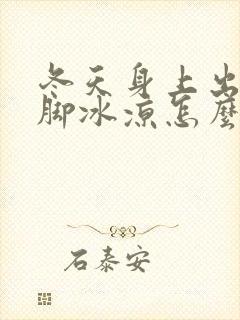 冬天身上出
脚冰凉怎麼
石泰安